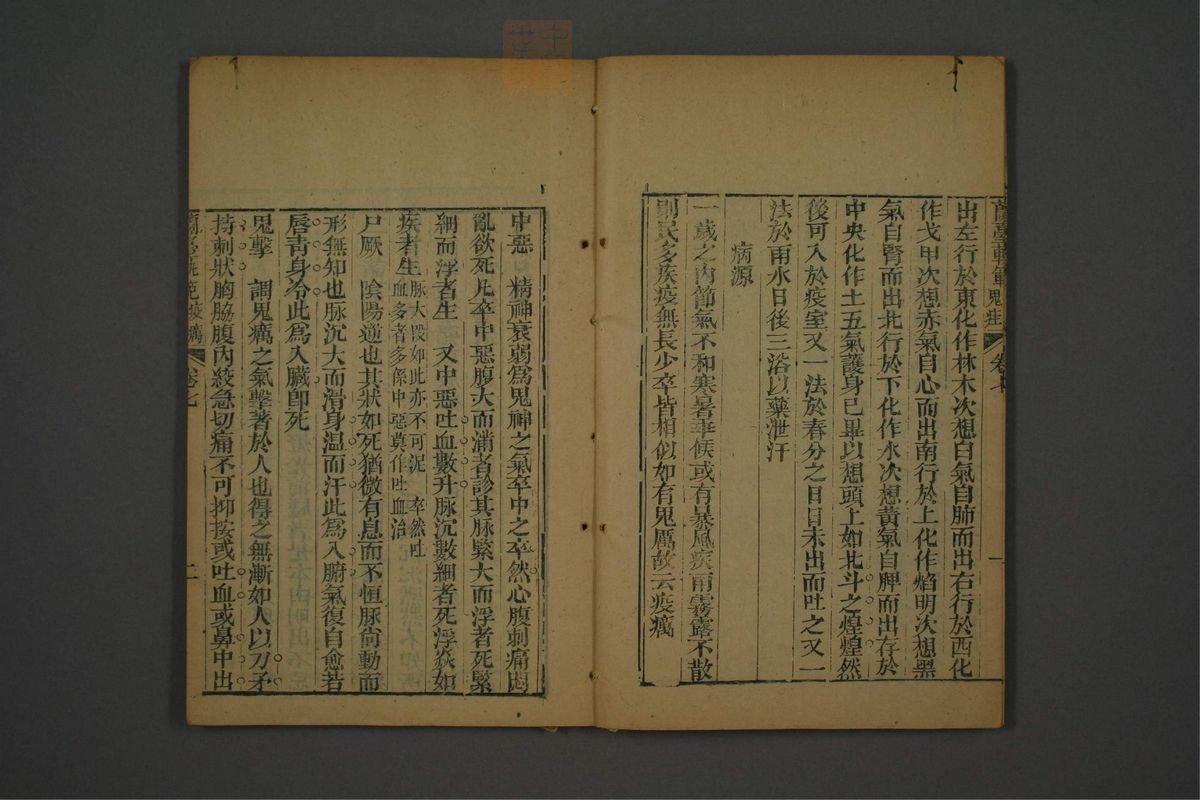 蘭臺軌範 鬼疰 卷七 一
出左行於東化作林木次想白氣自肺而出右行於西化
作戈甲次想赤氣自心而出南行於上化作焰明次想黑
氣自腎而出北行於下化作水次想黃氣自脾而出存於
中央化作土五氣護身已畢以想頭上如北斗之煌煌然
後可入於疫室又一法於春分之日日未出而吐之又一
法於雨水日後三浴以藥泄汗
病源
一歲之內節氣不和寒暑乖候或有暴風疾雨霧露不散
則民多疾疫無長少卒皆相似如有鬼厲故云疫癘
中惡 精神衰弱為鬼神之氣卒中之卒然心腹刺痛悶
亂欲死凡卒中惡腹大而滿者診其脈緊大而浮者死緊
細而浮者生 又中惡吐血數升脈沉數細者死浮焱如
疾者生脈大毀如此亦不可泥 卒然吐血多者多係中惡莫作吐血治
尸厥 陰陽逆也其狀如死猶微有息而不恒脈尚動而
形無知也脈沉大而滑身温而汗此為入腑氣復自愈若
唇青身冷此為入臟即死
鬼擊 謂鬼癘之氣擊著於人也得之無漸如人以刀矛
持刺狀胸脇腹內絞急切痛不可抑按或吐血或鼻中出
卷七 二